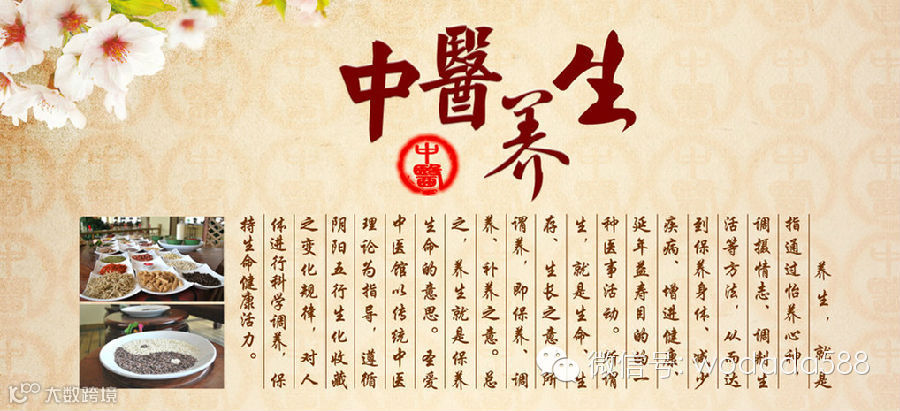 中醫养生
中醫
养生，就是
指通过怡养心神、
调摄情志、调剂生
活等方法，从而达
到保养身体、减少
疾病、增进健康、
延年益寿目的的一
种医事活动。所谓
生，就是生命、生
存、生长之意；所
谓养，即保养、调
养、补养之意。总
之，养生就是保养
生命的意思。圣爱
中医馆以传统中医
理论为指导，遵循
阴阳五行生化收藏
之变化规律，对人
体进行科学调养，保
持生命健康活力。
微信号: wodada588
大数跨境